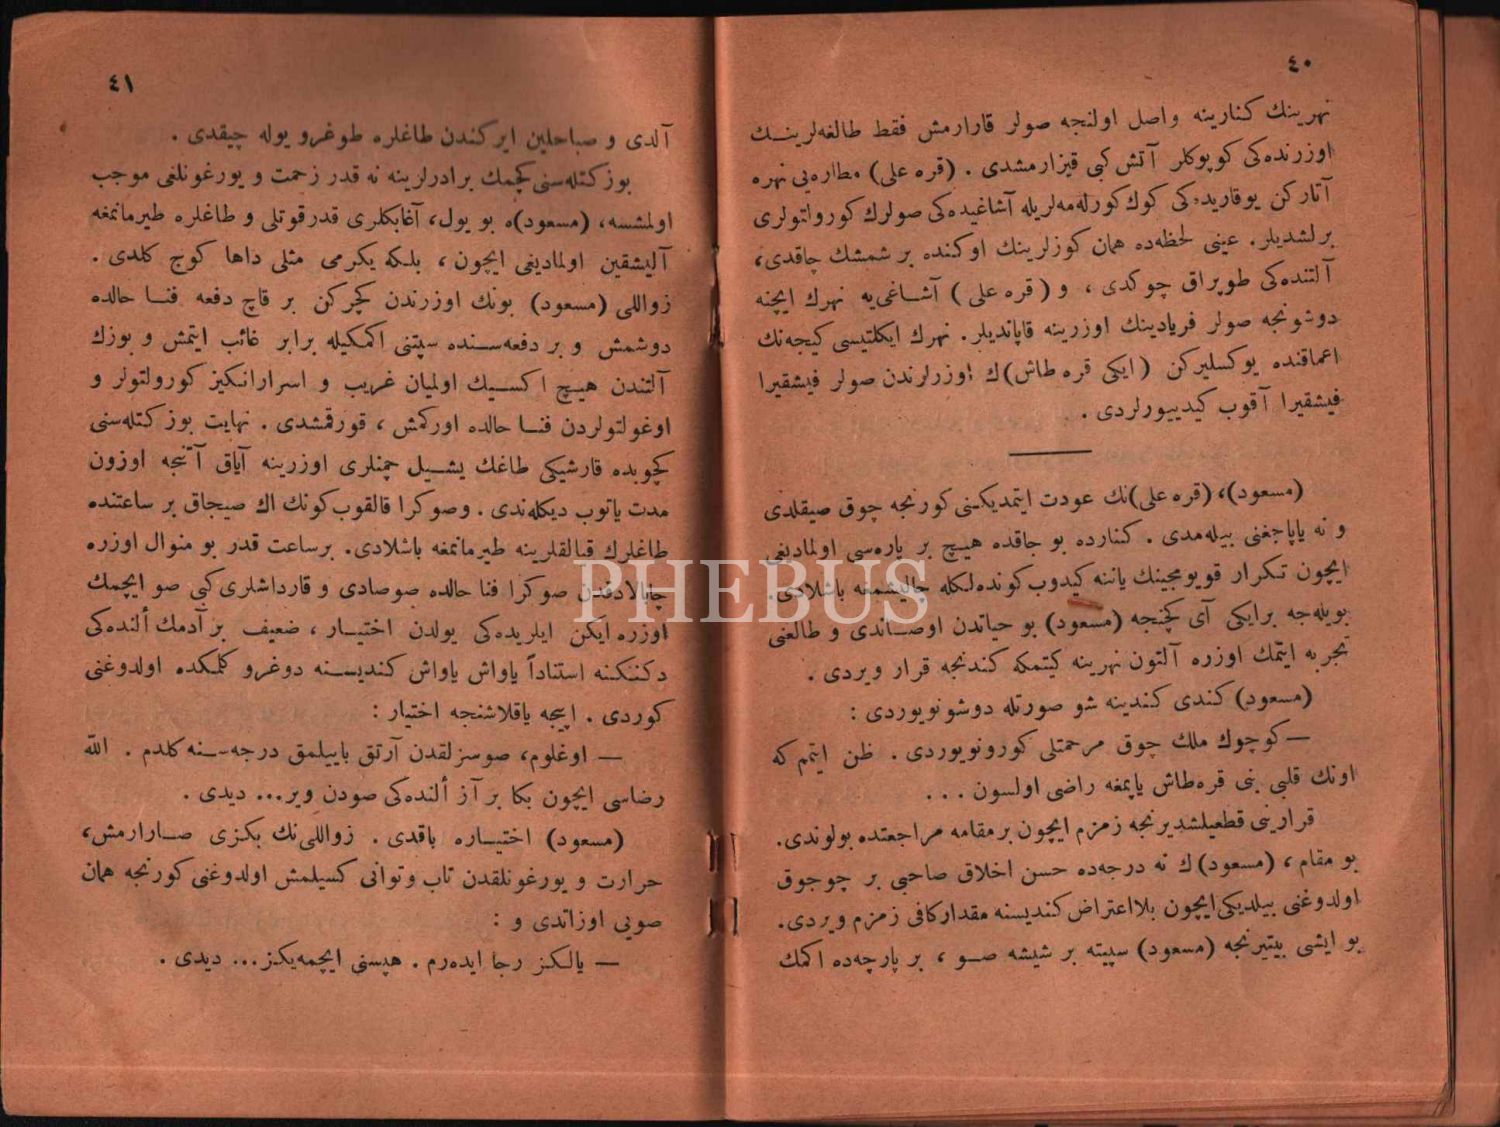 ٤٠
نهرينك كنارينه واصل اولنجه صولر قارارمش فقط طالغه‌لرينك
اوزرنده‌كى كوپوكلر آتش كبى قيزارمشدى . (قره على) مطاره‌يى نهره
آتاركن يوقاريده‌كى كوك كورله‌مه‌لريله آشاغيده‌كى صولرك كورولتولرى
برلشديلر. عينى لحظه‌ده همان كوزلرينك اوكنده بر شمشك چاقدى،
آلتنده‌كى طوپراق چوكدى ، و (قره على) آشاغى‌يه نهرك ايچنه
دوشونجه صولر فريادينك اوزرينه قاپانديلر. نهرك ايكلتيسى كيجه‌نك
اعماقنده يوكسليركن (ايكى قره طاش)ك اوزرلرندن صولر فيشقيرا
فيشقيرا آقوب كيدييورلردى .
(مسعود)، (قره على)نك عودت ايتمديكنى كورنجه چوق صيقلدى
و نه ياپاجغنى بيله‌مدى . كنارده بوجاقده هيچ بر پاره‌سى اولماديغى
ايچون تكرار قويومجينك ياننه كيدوب كونده‌لكله چاليشمغه باشلادى.
بويله‌جه برايكى آى كچنجه (مسعود) بو حياتدن اوصاندى و طالعنى
تجربه ايتمك اوزره آلتون نهرينه كيتمكه كندنجه قرار ويردى .
(مسعود) كندى كندينه شو صورتله دوشونويوردى :
—كوچوك ملك چوق مرحمتلى كورونويوردى . ظن ايتمم كه
اونك قلبى بنى قره‌طاش ياپمغه راضى اولسون ...
قرارينى قطعيلشديرنجه زمزم ايچون بر مقامه مراجعتده بولوندى.
بو مقام ، (مسعود)ك نه درجه‌ده حسن اخلاق صاحبى بر چوجوق
اولدوغنى بيلديكى ايچون بلااعتراض كنديسنه مقداركافى زمزم ويردى.
بو ايشى بيتيرنجه (مسعود) سپيته بر شيشه صو ، بر پارچه‌ده اكمك
٤١
آلدى و صباحلين ايركندن طاغلره طوغرو يوله چيقدى .
بوز كتله‌سنى كچمك برادرلرينه نه قدر زحمت و يورغونلغى موجب
اولمشسه، (مسعود)ه بو يول، آغابكلرى قدر قوتلى و طاغلره طيرمانمغه
آليشقين اولماديغى ايچون ، بلكه يكرمى مثلى داها كوج كلدى .
زواللى (مسعود) بونك اوزرندن كچركن بر قاچ دفعه فنا حالده
دوشمش و بر دفعه‌سنده سپتنى اكمكيله برابر غائب ايتمش و بوزك
آلتندن هيچ اكسيك اولميان غريب و اسرارانكيز كورولتولر و
اوغولتولردن فنا حالده اوركمش ، قورقمشدى . نهايت بوز كتله‌سنى
كچوبده قارشيكى طاغك يشيل چمنلرى اوزرينه آياق آتنجه اوزون
مدت ياتوب ديكله‌ندى . وصوكرا قالقوب كونك اك صيجاق بر ساعتنده
طاغلرك قيالقلرينه طيرمانمغه باشلادى. برساعت قدر بو منوال اوزره
چابالادقدن صوكرا فنا حالده صوصادى و قارداشلرى كبى صو ايچمك
اوزره ايكن ايلريده‌كى يولدن اختيار ، ضعيف بر آدمك ألنده‌كى
دكنكنه استناداً ياواش ياواش كنديسنه دوغرو كلمكده اولدوغنى
كوردى . اييجه ياقلاشنجه اختيار :
— اوغلوم، صوسزلقدن آرتق بايیلمق درجه‌سنه كلدم . الله
رضاسى ايچون بكا بر آز ألنده‌كى صودن وير... ديدى .
(مسعود) اختياره باقدى . زواللى‌نك بكزى صارارمش،
حرارت و يورغونلقدن تاب وتوانى كسيلمش اولدوغنى كورنجه همان
صويى اوزاتدى و :
— يالكز رجا ايده‌رم . هپسنى ايچمه‌يكز... ديدى .
PHEBUS